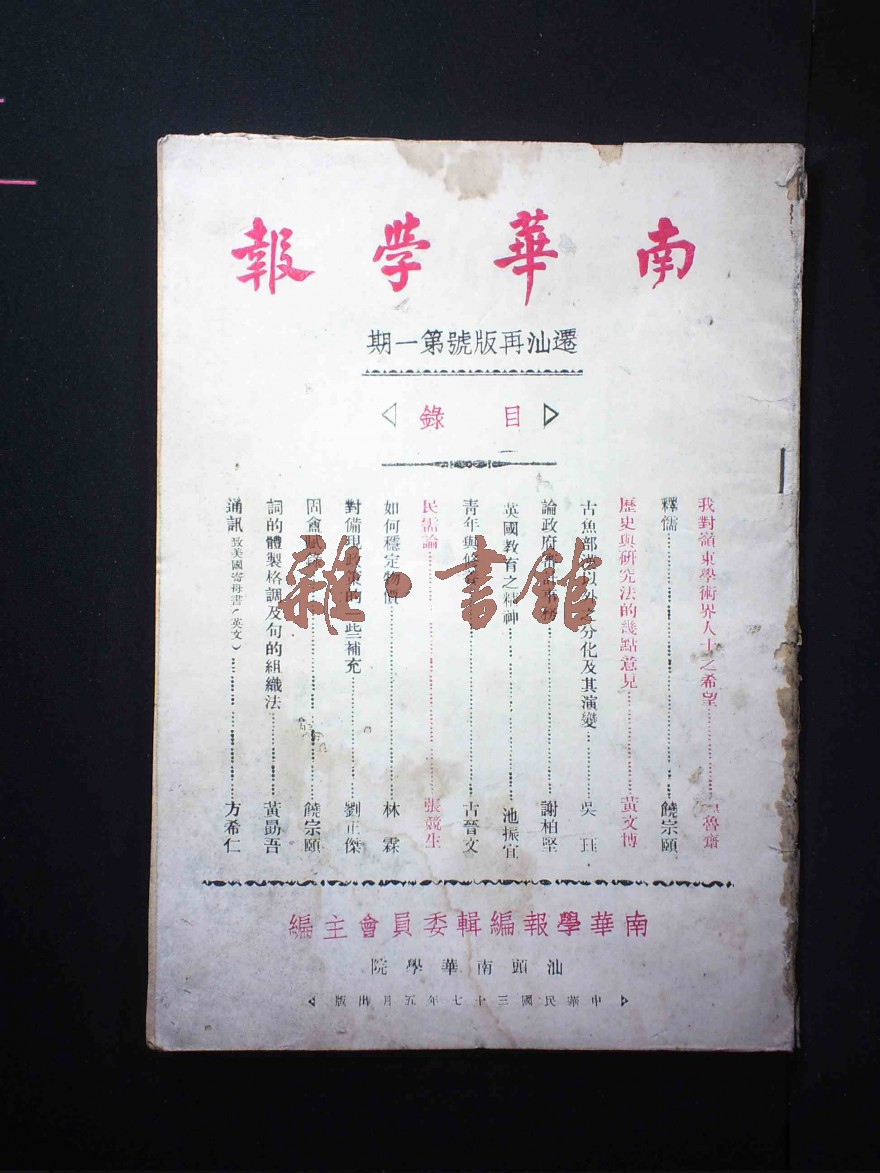 南華學報
遷汕再版號第一期
目錄
我對嶺東學術界人士之希望 魯齋
釋儒 饒宗頤
歷史與研究法的幾點意見 黃文博
古魚部 分化及其演變 吳珏
論政府 謝柏堅
英國教育之精神 池振宜
青年與修 古晉文
民 論 張競生
如何穩定物價 林霖
對備現政策的一些補充 劉正傑
固盦賦 饒宗頤
詞的體製格調及句的組織法 黃勗吾
通訊 致美國寄母書(英文) 方希仁
南華學報編輯委員會主編
汕頭南華學院
中華民國三十七年五月出版
雜·書館